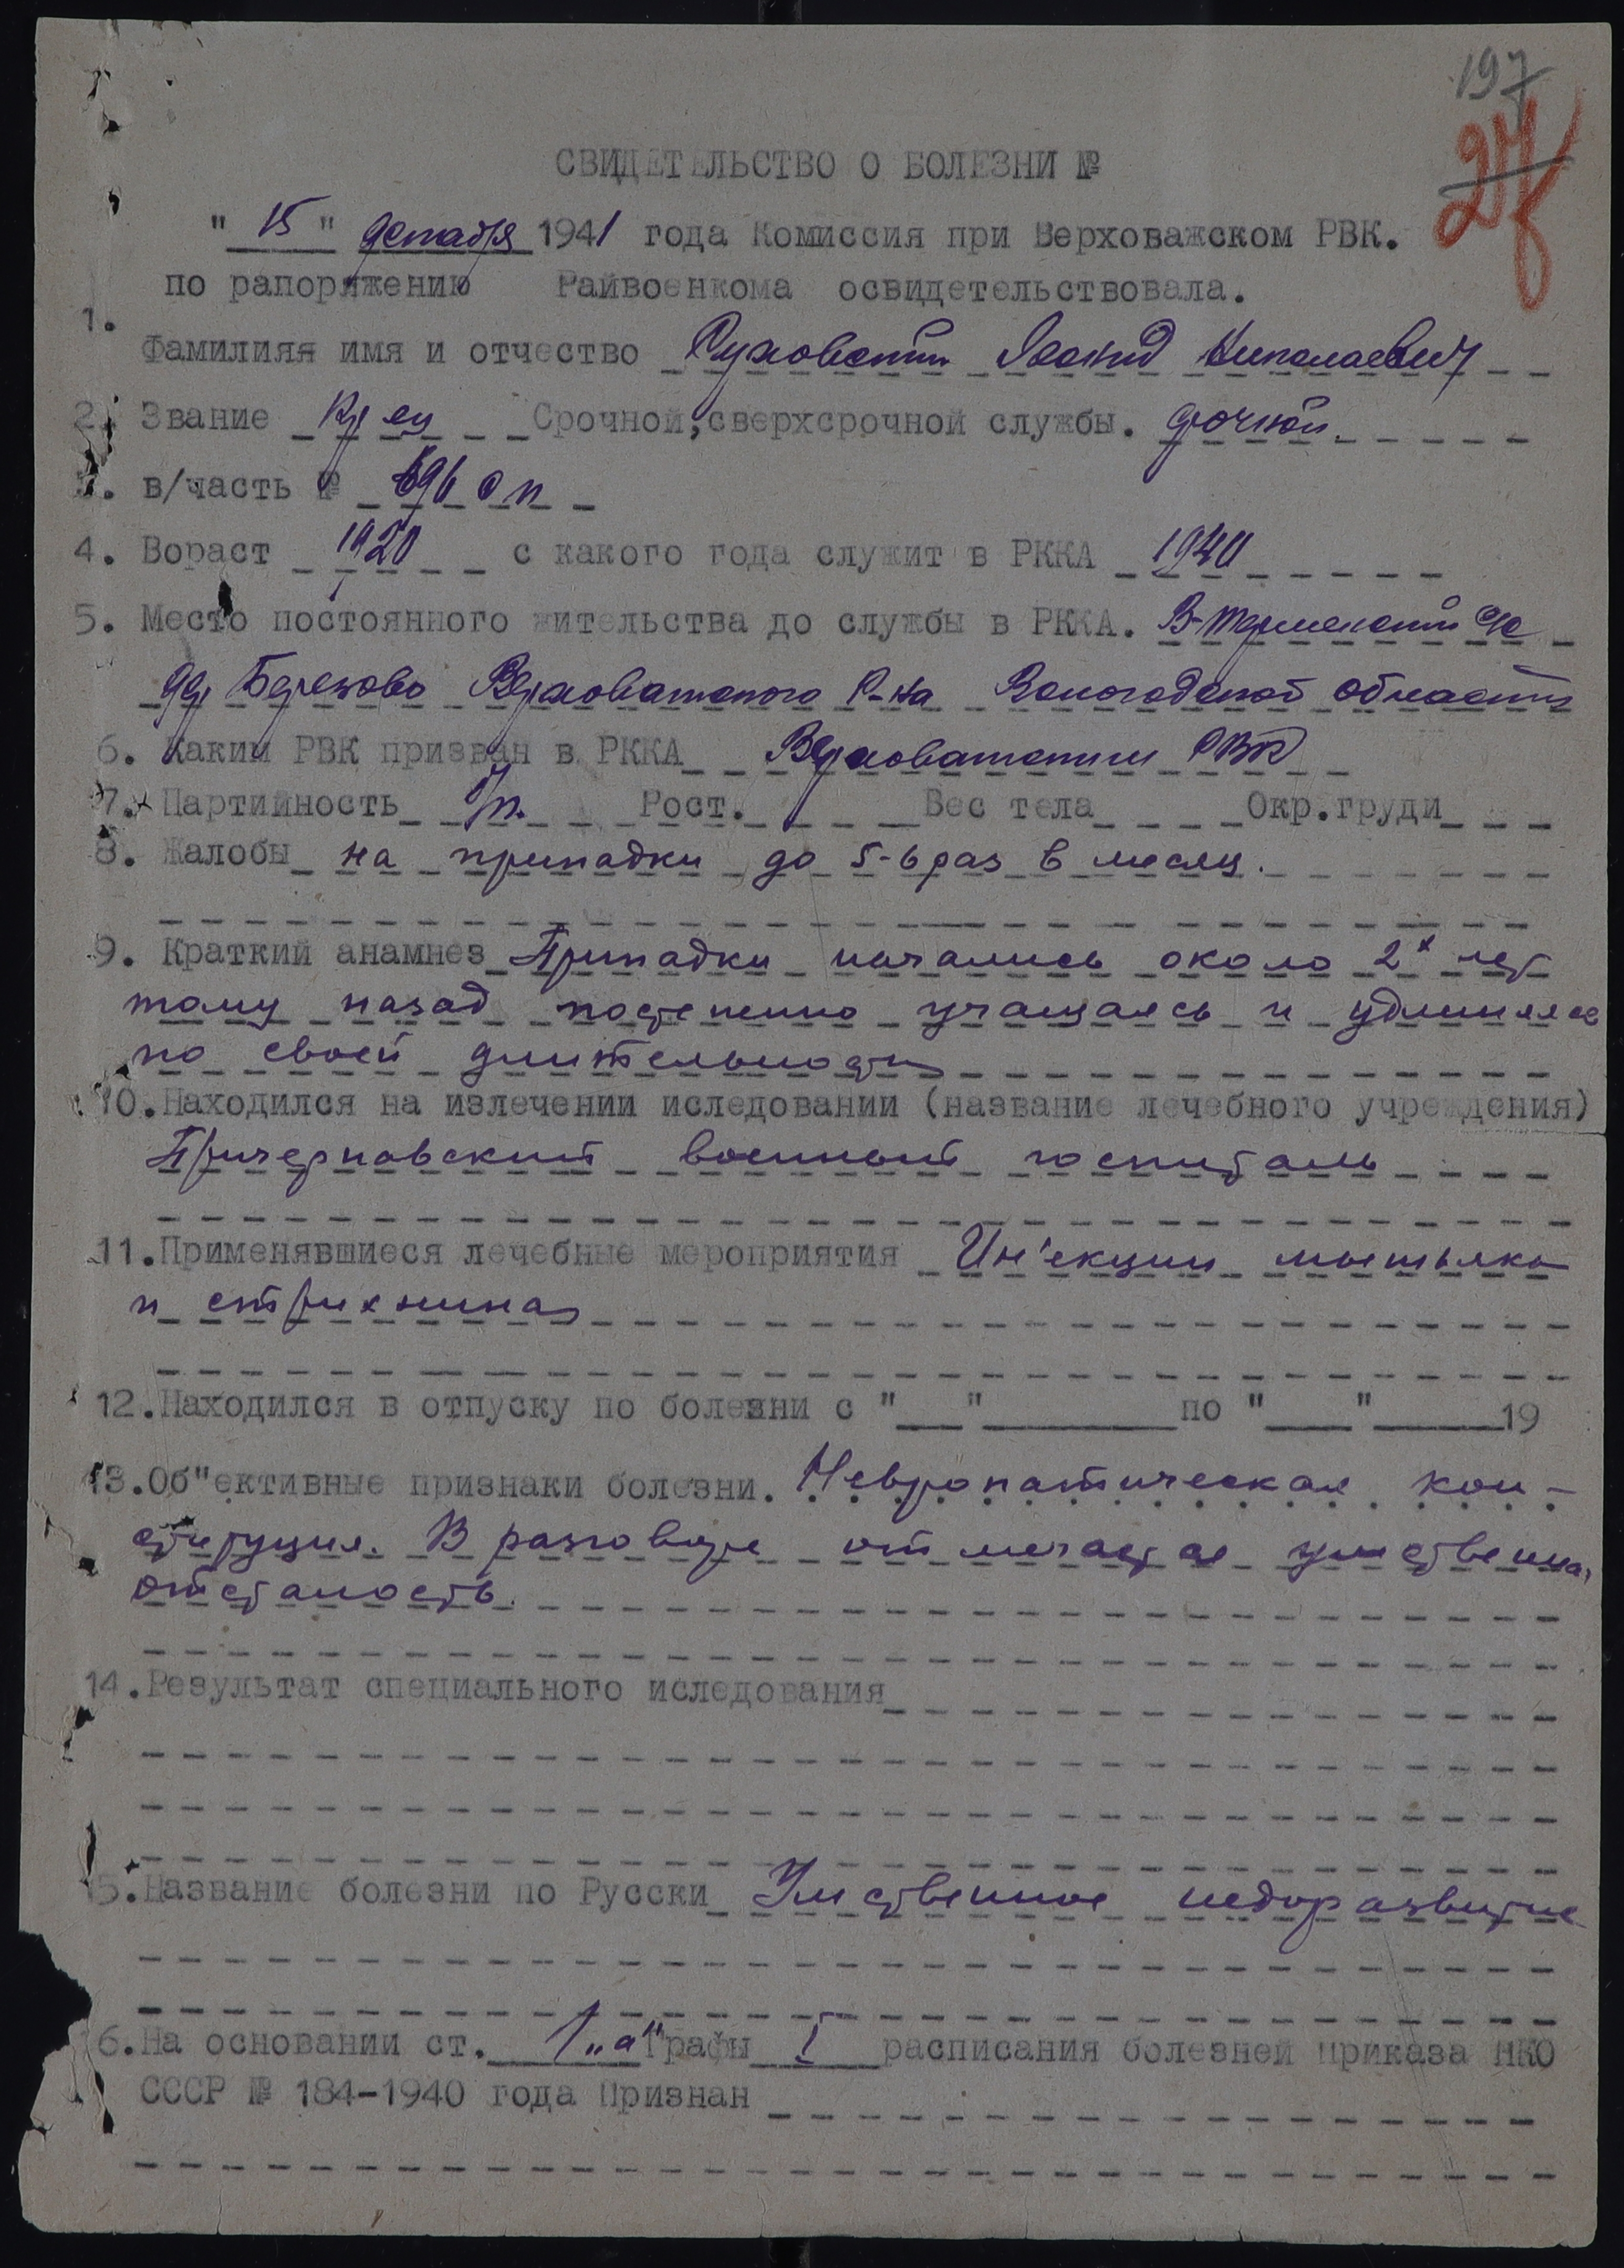 197
СВИДЕТЕЛЬСТВО О БОЛЕЗНИ №
" 15 " декабря 1941 года Комиссия при Верховажском РВК.
по рапоряжению Райвоенкома освидетельствовала.
1.
Фамилияя имя и отчество Николаевич
2. Звание кр-ец Срочной, сверхсрочной службы. срочной.
3. в/часть № 696 с п
4. Вораст 1920 с какого года служит в РККА 1940
5. Место постоянного жительства до службы в РККА. В-Терменский с/с
дер Березово Верховажского Р-на Вологодской области
6. Каким РВК призван в РККА Верховажским РВК
7. Партийность б/п. Рост. Вес тела Окр.груди
8. Жалобы на припадки до 5-6 раз в месяц.
9. Краткий анамнез Припадки начались около 2х лет
тому назад постепенно учащаясь и удлиняясь
по своей длительности
10. Находился на излечении иследовании (название лечебного учреждения)
военный госпиталь
11. Применявшиеся лечебные мероприятия Ин'екции мышьяка
и стрихнина
12. Находился в отпуску по болезни с " " по " " 19
13. Об"ективные признаки болезни. Невропатическая кон-
ституция. В разговоре отмечается умственная
отсталость.
14. Результат специального иследования
15. Название болезни по Русски Умственное недоразвитие
16. На основании ст. 1 „а" Графы I расписания болезней приказа НКО
СССР № 184-1940 года Признан